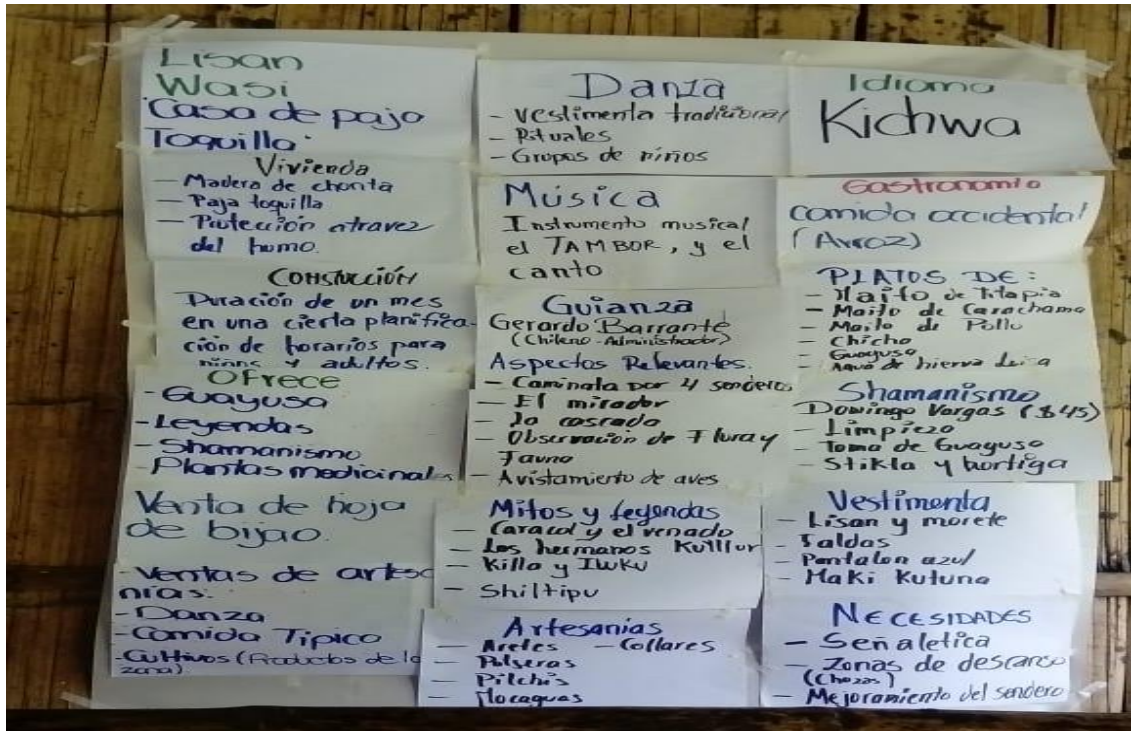 Lisan
Wasi
"Casa de paja
Toquilla"
Vivienda
- Madera de chonta
- Paja toquilla
- Protección atravez
del humo.
Construcción
Duración de un mes
en una cierta planifica-
ción de horarios para
niños y adultos.
Ofrece
- Guayusa
- Leyendas
- Shamanismo
- Plantas medicinales
Venta de hoja
de bijao.
- Ventas de artesa
nías.
- Danza
- Comida Típica
- Cultivos (Productos de la
zona)
Danza
- Vestimenta tradicional
- Rituales
- Grupos de niños
Música
Instrumento musical
el TAMBOR, y el
canto
Guianza
Gerardo Barrante
(Chileno - Administrador)
Aspectos Relevantes.
- Caminata por 4 senderos
- El mirador
- la cascada
- Observación de Flora y
Fauna
- Avistamiento de aves
Mitos y leyendas
- Caracol y el venado
- Los hermanos
- Killa y
- Shiltipu
Artesanías
- Aretes - Collares
- Pulseras
- Pilchis
- Mocaguas
Idioma
Kichwa
Gastronomía
comida occidental
(Arroz)
PLATOS DE:
- Maito de tilapia
- Maito de Carachama
- Maito de Pollo
- Chicha
- Guayusa
- Agua de hierva Luisa
Shamanismo
Domingo Vargas ($45)
- Limpieza
- Toma de Guayusa
- Stikla y hortiga
Vestimenta
- Lisan y morete
- Faldas
- Pantalon azul
- Maki Kutuna
NECESIDADES
- Señaletica
- Zonas de descanso
(Chozas)
- Mejoramiento del sendero